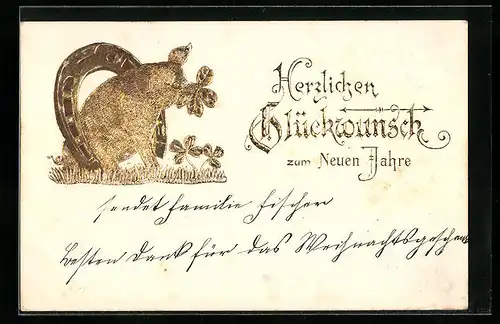 Herzlichen
Glückwunsch
zum Neuen Jahre
sendet Familie Fischer
Besten Dank für das Weihnachtsgeschenk